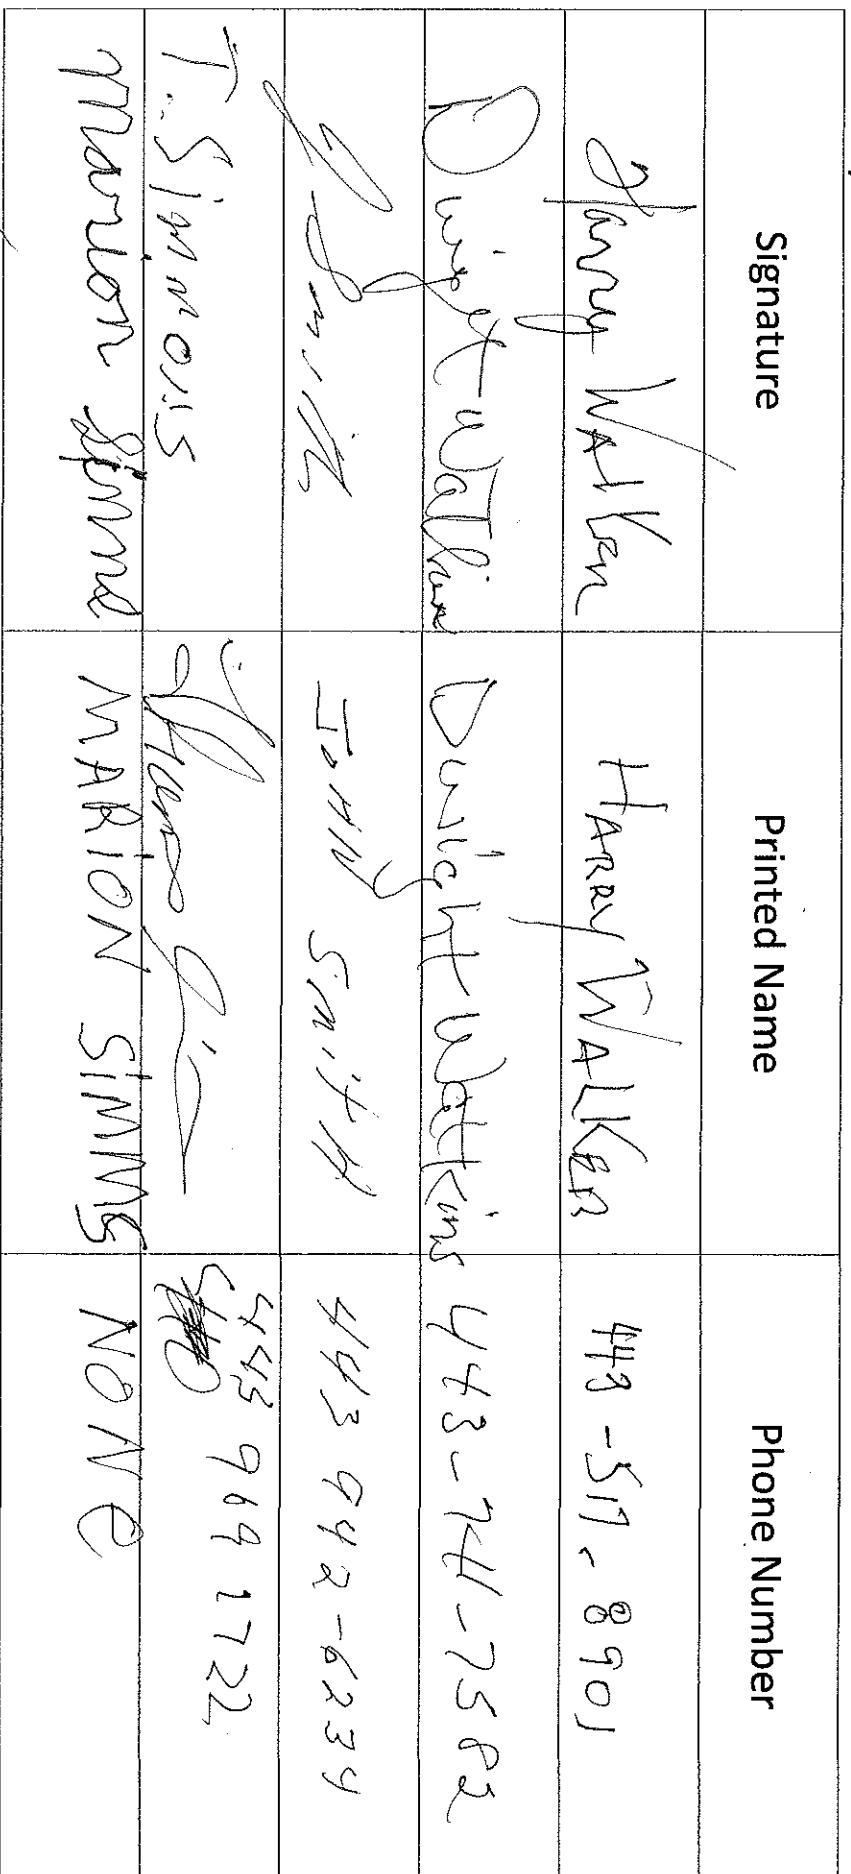 Signature Printed Name Phone Number
Harry Walker HARRY WALKER 443-517-8901
Dwight Watkins Dwight Watkins 443-741-7582
J Smith JOHN SmitH 443 942-6234
T. Simmons 443 969 1722
Marion Simms MARION SIMMS NONe